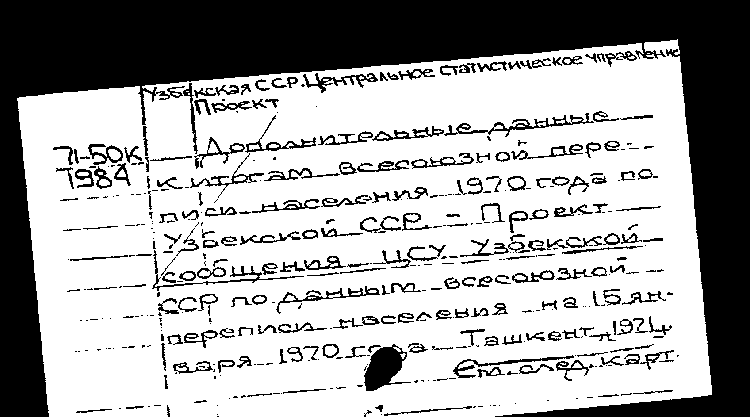 Узбекская ССР. Центральное статистическое управление
Проект
71-50К
1984
Дополнительные данные
к итогам всесоюзной пере-
писи населения 1970 года по
Узбекской ССР. – Проект
сообщения ЦСУ Узбекской
ССР по данным всесоюзной
переписи населения на 15 ян-
варя 1970 года. Ташкент, 1971.
См. след. карт.